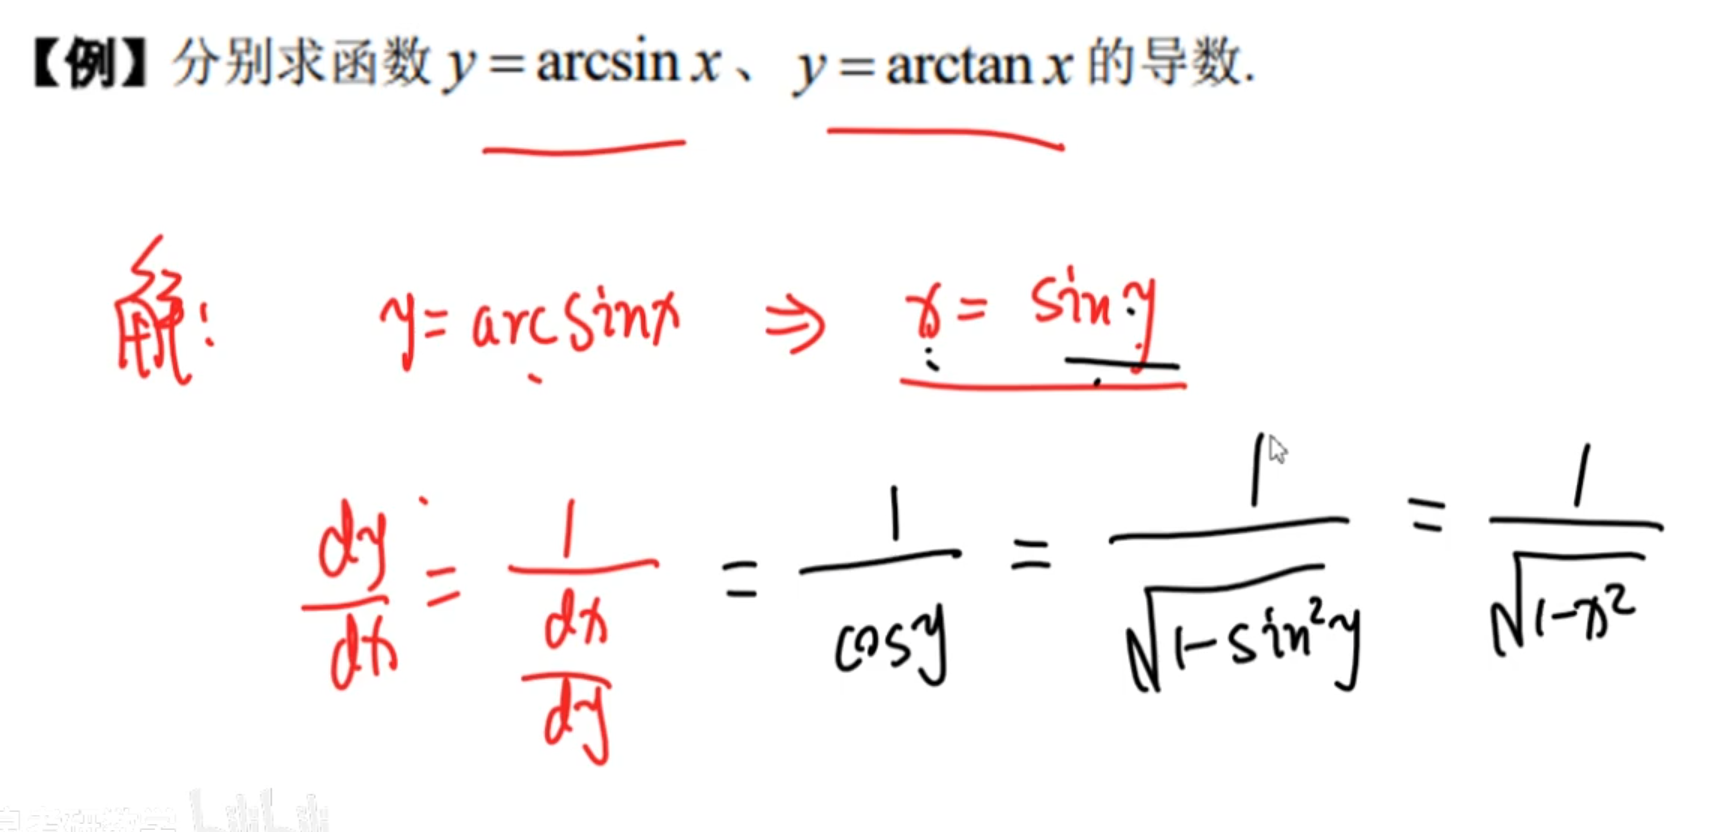 【例】分别求函数 y = arcsin x 、 y = arctan x 的导数.
解: y = arcsinx ⇒ x = sin y
dy/dx = 1/(dx/dy) = 1/cosy = 1/√(1-sin²y) = 1/√(1-x²)
考研数学